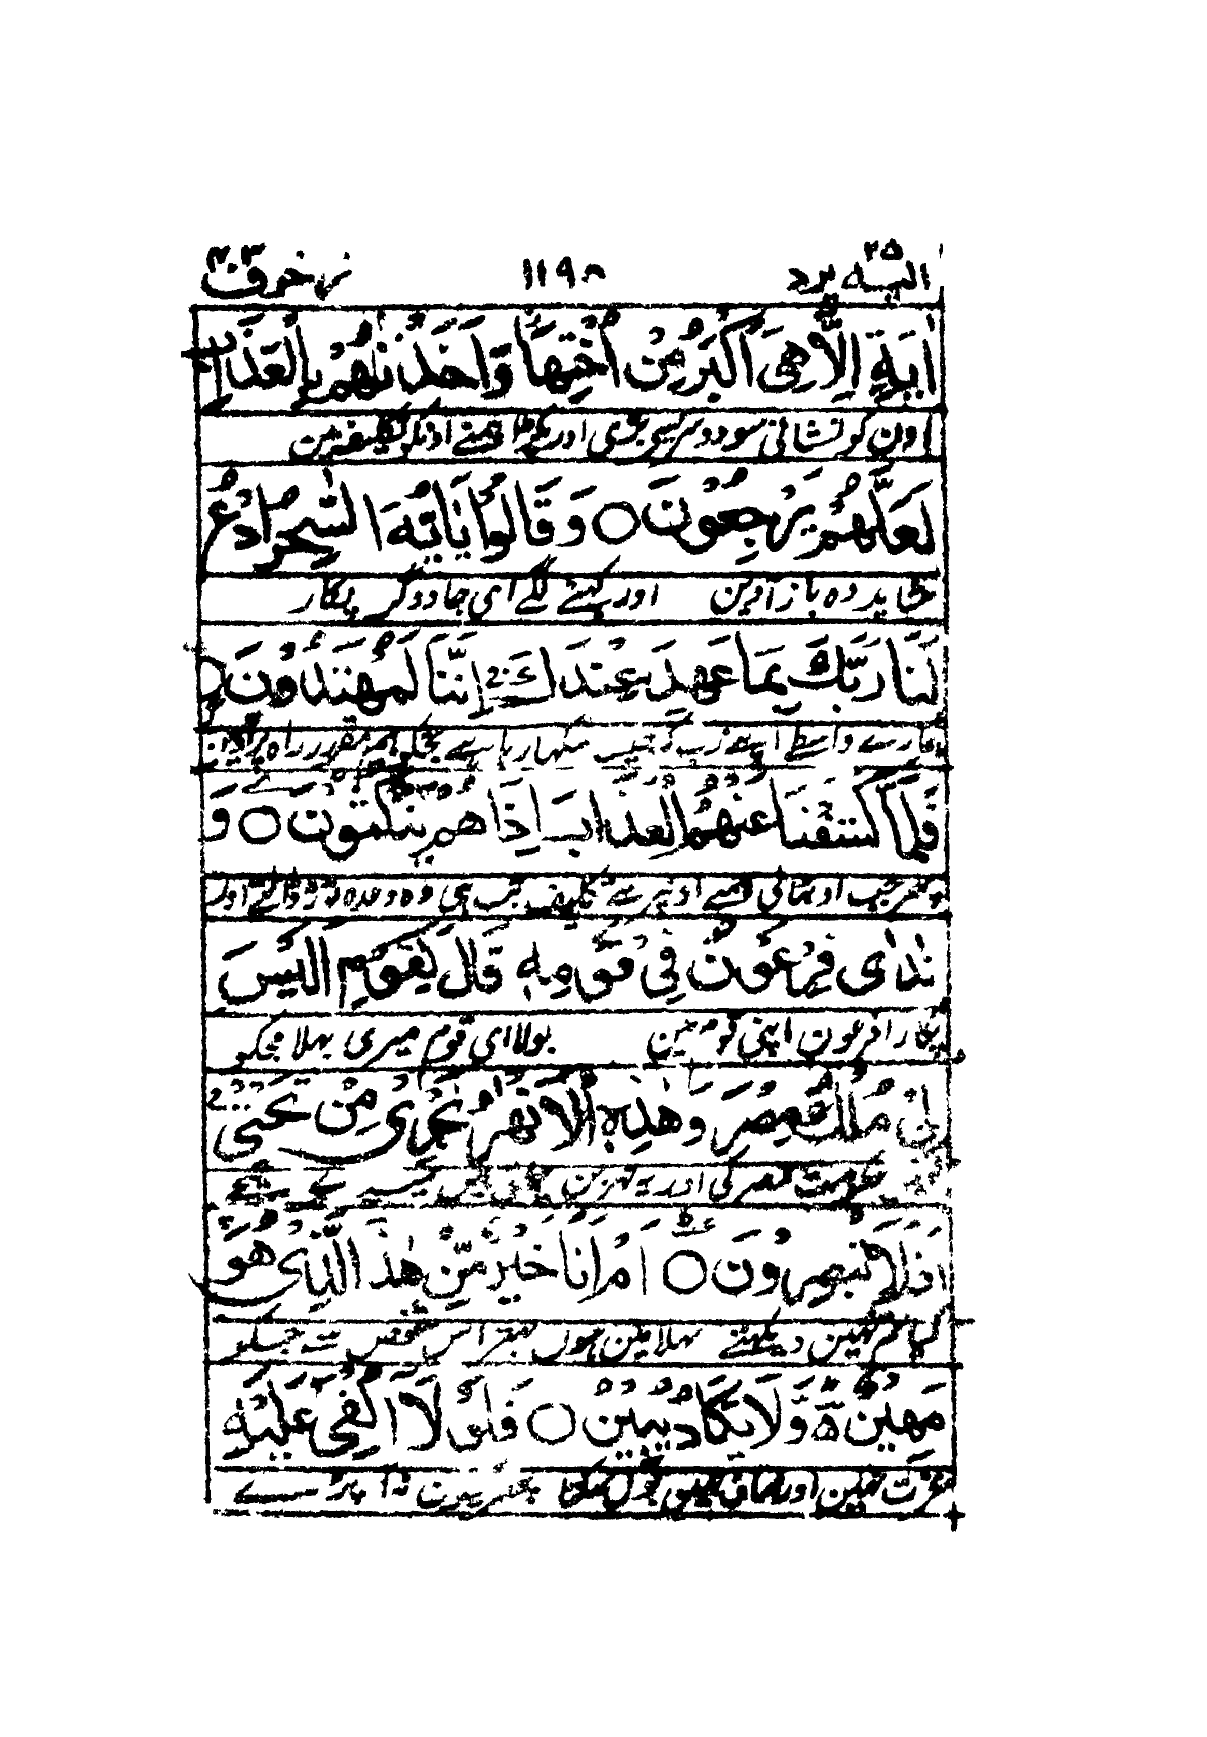 الیه یرد ٢٥ ١١٩٨ زخرف ٤٣
اٰيَةٍ اِلَّا هِىَ اَكْبَرُ مِنْ اُخْتِهَا وَاَخَذْنٰهُمْ بِالْعَذَابِ
اون کو نشانی سو دوسریسے بڑی اور پکڑا ہمنے اونکو تکلیف مین
لَعَلَّهُمْ يَرْجِعُوْنَ ○ وَقَالُوْا يٰاَيُّهَ السّٰحِرُ ادْعُ
شاید وہ باز آوین اور کہنے لگے ای جادوگر پکار
لَنَا رَبَّكَ بِمَا عَهِدَ عِنْدَكَ اِنَّنَا لَمُهْتَدُوْنَ ○
ہمارے واسطے اپنے رب کو جیسا سکھا رہا ہے تجکو ہم مقرر راہ پر آوین
فَلَمَّا كَشَفْنَا عَنْهُمُ الْعَذَابَ اِذَا هُمْ يَنْكُثُوْنَ ○ وَ
پھر جب اوٹھالی ہمنے اونپر سے تکلیف تب ہی وہ وعدہ توڑ ڈالتے اور
نَادٰى فِرْعَوْنُ فِىْ قَوْمِهٖ قَالَ يٰقَوْمِ اَلَيْسَ
پکارا فرعون اپنی قوم مین بولا ای قوم میری بھلا مجکو
لِىْ مُلْكُ مِصْرَ وَهٰذِهِ الْاَنْهٰرُ تَجْرِىْ مِنْ تَحْتِىْ
حکومت مصر کی اور یہ نہرین
اَفَلَا تُبْصِرُوْنَ ○ اَمْ اَنَا خَيْرٌ مِّنْ هٰذَا الَّذِىْ هُوَ
کیا تم نہین دیکھتے بھلا مین ہون بہتر اس شخص سے جسکو
مَهِيْنٌ وَّلَا يَكَادُ يُبِيْنُ ○ فَلَوْلَا اُلْقِىَ عَلَيْهِ
عزت نہین اور صاف نہین بول سکتا پھر کیون نہ آ پڑے